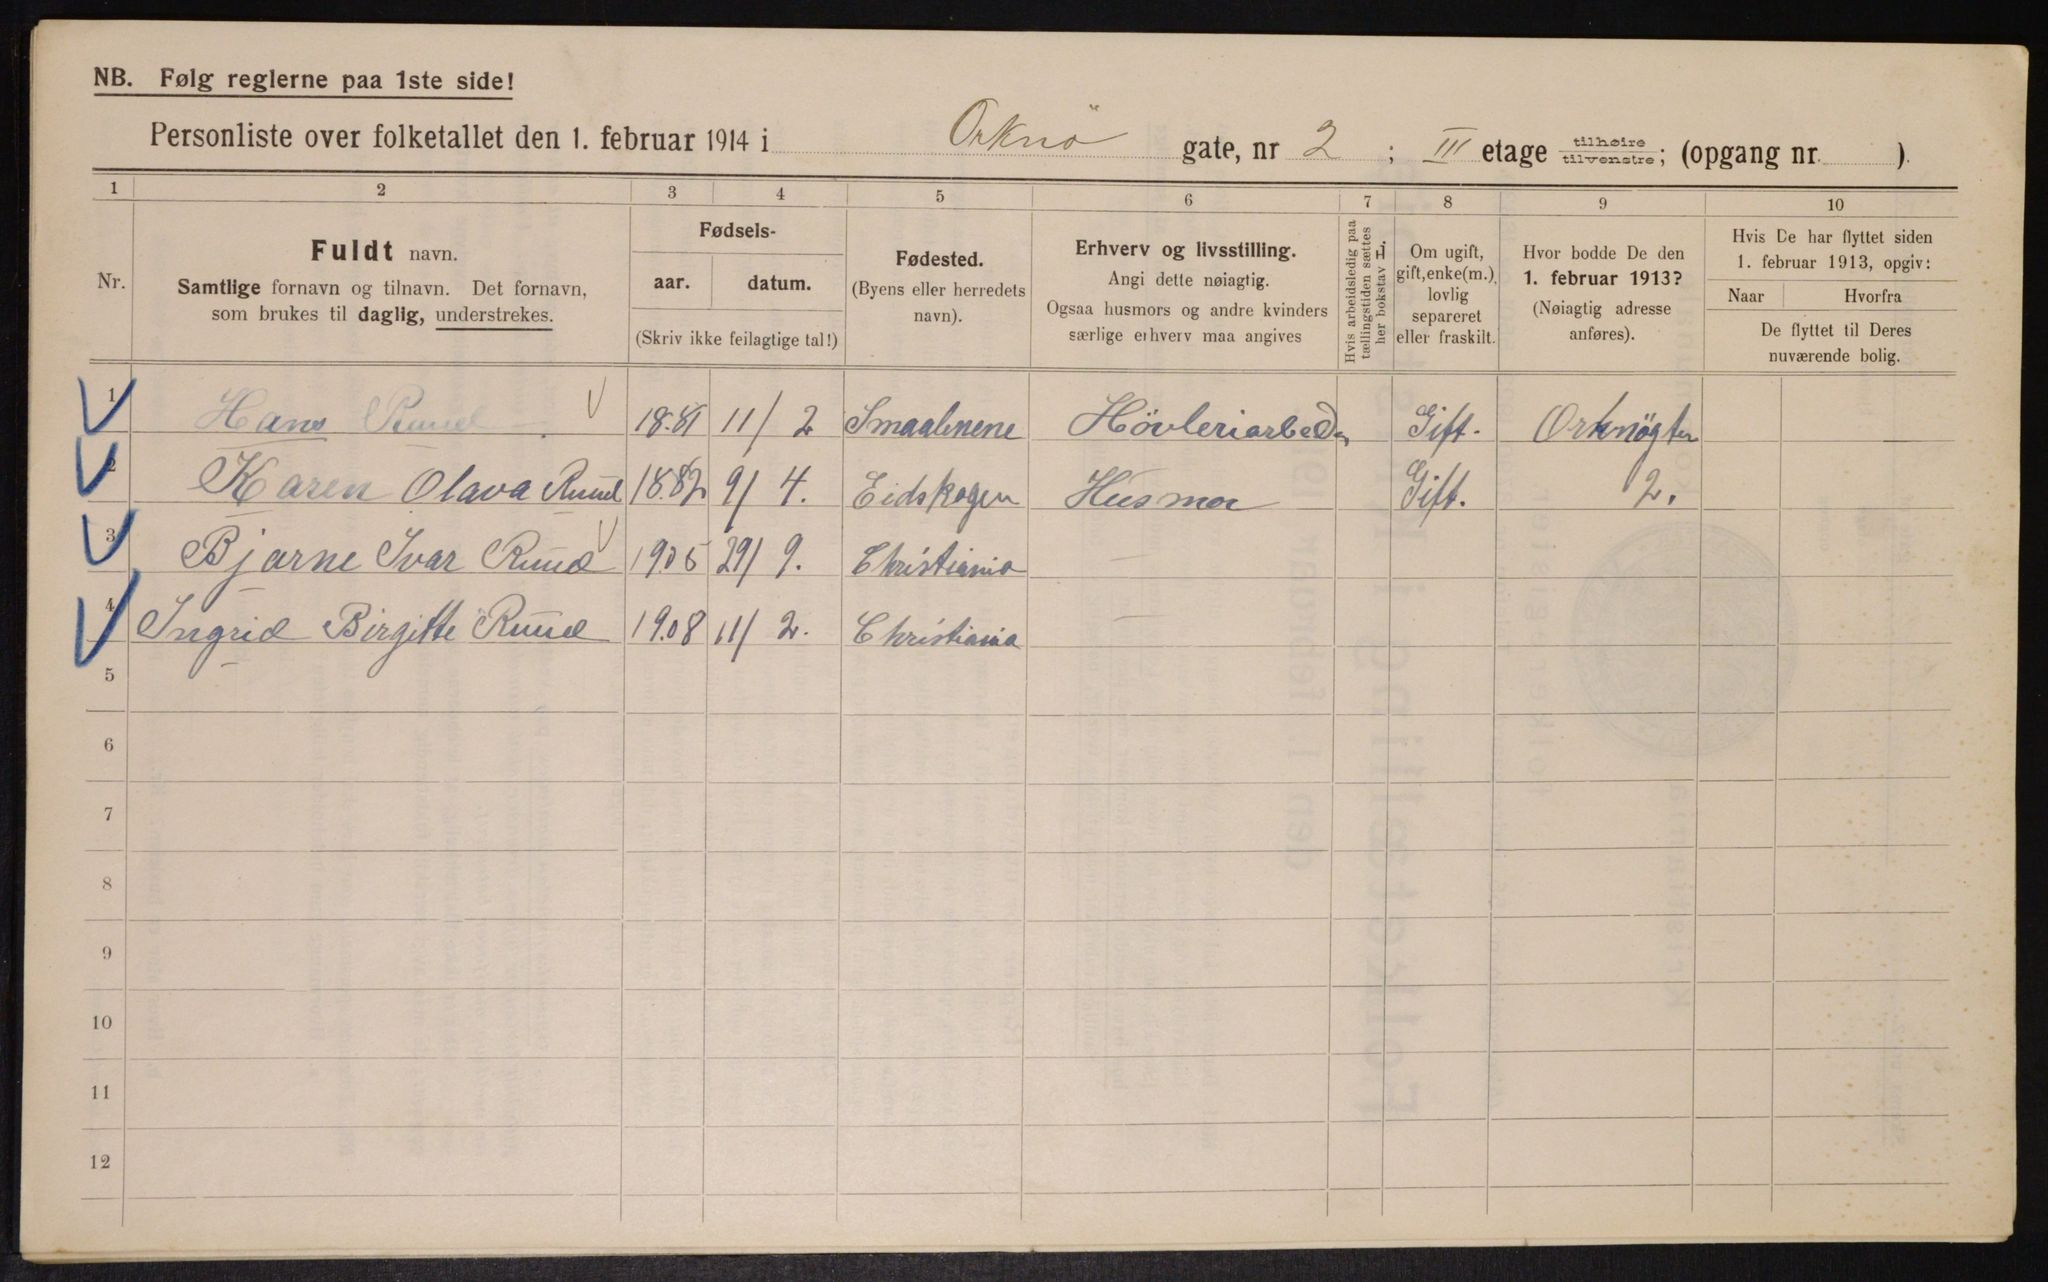 NB. Følg reglerne paa 1ste side!
Personliste over folketallet den 1. februar 1914 i Orknö gate, nr 2 ; III etage tilhøire/tilvenstre; (opgang nr. ).
1 2 3 4 5 6 7 8 9 10
Nr.
Fuldt navn.
Samtlige fornavn og tilnavn. Det fornavn,
som brukes til daglig, understrekes.
Fødsels-
aar. datum.
(Skriv ikke feilagtige tal!)
Fødested.
(Byens eller herredets
navn).
Erhverv og livsstilling.
Angi dette nøiagtig.
Ogsaa husmors og andre kvinders
særlige erhverv maa angives
Hvis arbeidsledig paa
tællingstiden sættes
her bokstav L.
Om ugift,
gift, enke(m.),
lovlig
separeret
eller fraskilt.
Hvor bodde De den
1. februar 1913?
(Nøiagtig adresse
anføres).
Hvis De har flyttet siden
1. februar 1913, opgiv:
Naar Hvorfra
De flyttet til Deres
nuværende bolig.
1 Hans Ruud 18.81 11/2 Smaalenene Hövleriarbeder Gift. Orknögten
2 Karen Olava Ruud 18.82 9/4. Eidskogen Husmor Gift. 2.
3 Bjarne Ivar Ruud 19.05 29/9. Christiania —
4 Ingrid Birgitte Ruud 19.08 11/2. Christiania —
5
6
7
8
9
10
11
12